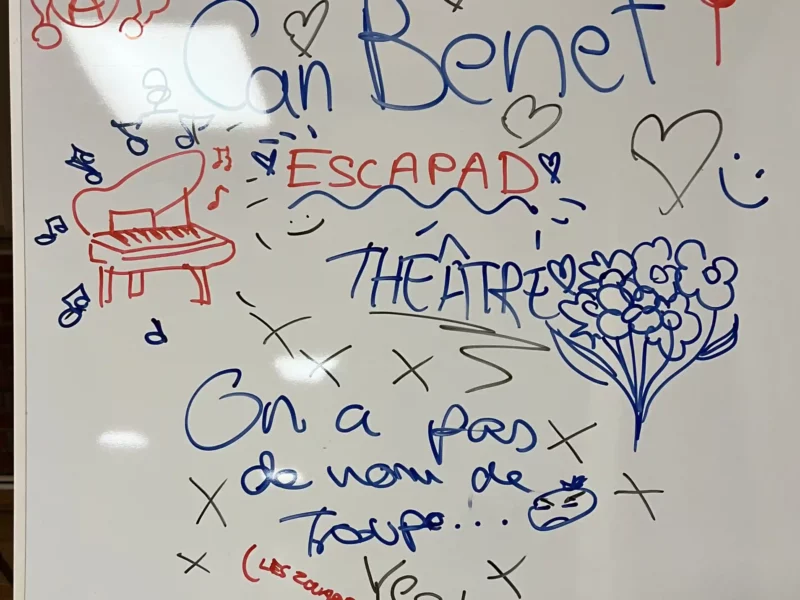 Can Benet
ESCAPAD
THÉÂTRE
On a pas
de nom de
Troupe...
(LES